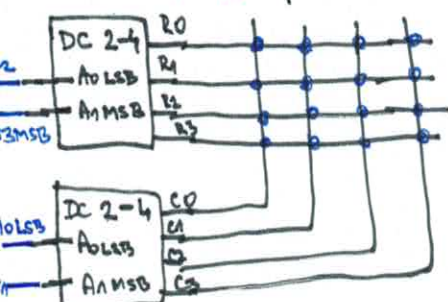 DC 2-4
A0LSB
A1MSB
R0
R1
R2
R3
2
B3MSB
DC 2-4
A0LSB
A1MSB
C0
C1
C2
C3
A0LSB